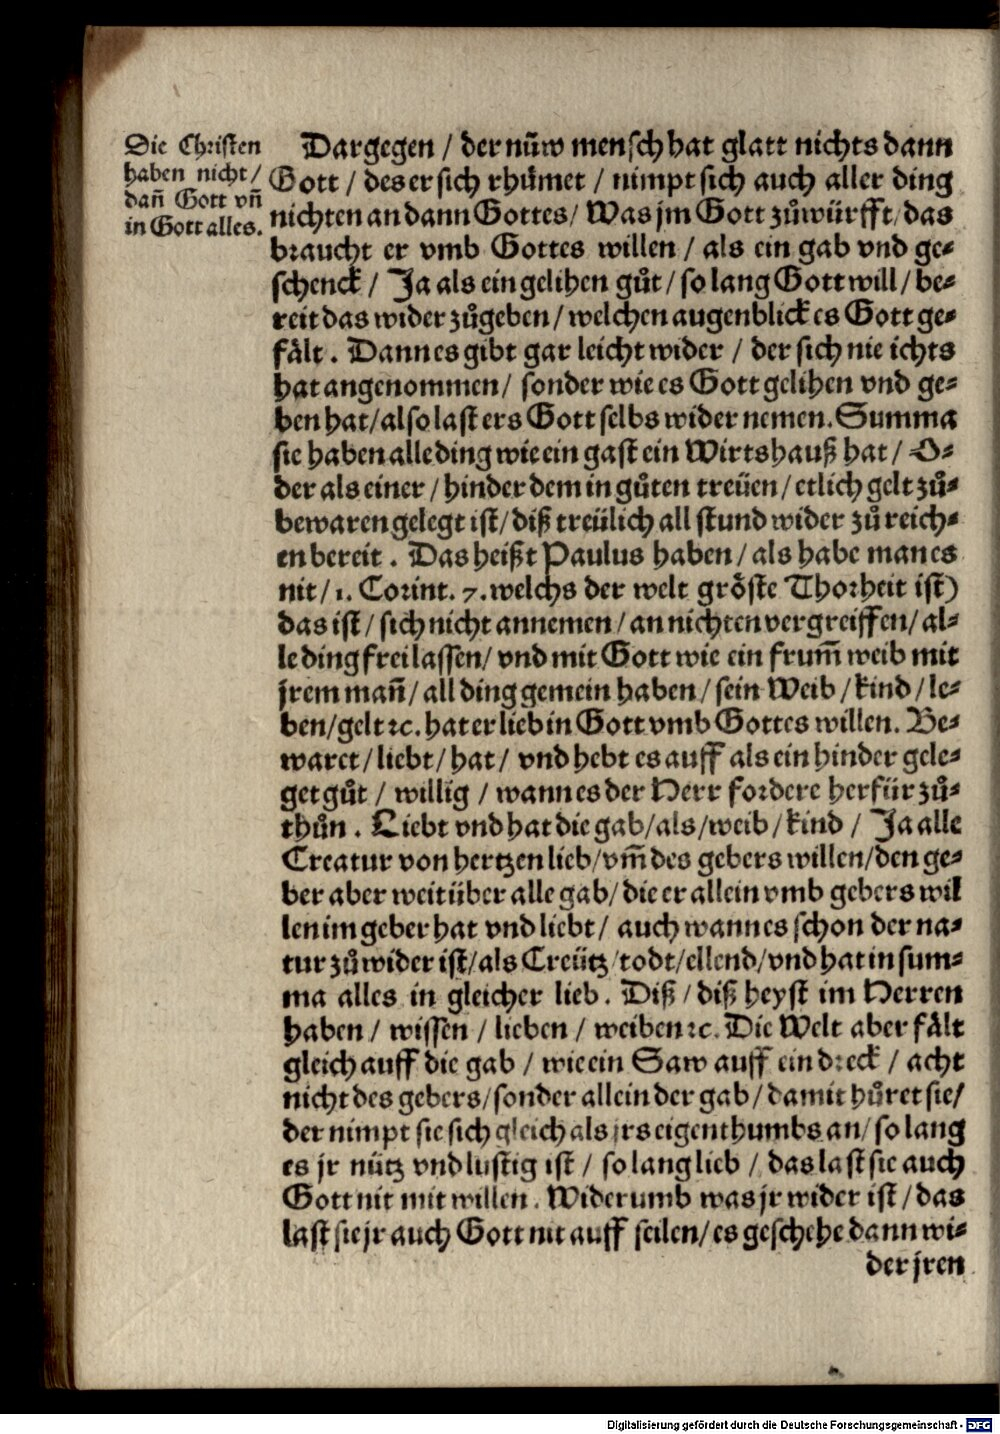 Die Christen
haben nicht /
dañ Gott vñ
in Gott alles.
Dargegen / der nüw mensch hat glatt nichts dann
Gott / des er sich rhůmet / nimpt sich auch aller ding
nichten an dann Gottes / Was jm Gott zůwürfft / das
braucht er vmb Gottes willen / als ein gab vnd ge⸗
schenck / Ja als ein gelihen gůt / so lang Gott will / be⸗
reit das wider zůgeben / welchen augenblick es Gott ge⸗
fålt . Dann es gibt gar leicht wider / der sich nie ichts
hat angenommen / sonder wie es Gott gelihen vnd ge⸗
ben hat / also last ers Gott selbs wider nemen. Summa
sie haben alle ding wie ein gast ein Wirtshauß hat / O⸗
der als einer / hinder dem in gůten treüen / etlich gelt zů⸗
bewaren gelegt ist / diß treülich all stund wider zů reich⸗
en bereit . Das heißt Paulus haben / als habe man es
nit / 1. Corint. 7. welchs der welt gröste Thorheit ist)
das ist / sich nicht annemen / an nichten vergreiffen / al⸗
le ding frei lassen / vnd mit Gott wie ein frum̃ weib mit
jrem mañ / all ding gemein haben / sein Weib / kind / le⸗
ben / gelt ⁊c. hat er lieb in Gott vmb Gottes willen. Be⸗
waret / liebt / hat / vnd hebt es auff als ein hinder gele⸗
get gůt / willig / wann es der Herr fordere herfür zů⸗
thůn . Liebt vnd hat die gab / als / weib / kind / Ja alle
Creatur von hertzen lieb / vm̃ des gebers willen / den ge⸗
ber aber weit über alle gab / die er allein vmb gebers wil
len im geber hat vnd liebt / auch wann es schon der na⸗
tur zůwider ist / als Creütz / todt / ellend / vnd hat in sum⸗
ma alles in gleicher lieb . Diß / diß heyst im Herren
haben / wissen / lieben / weiben ⁊c. Die Welt aber fålt
gleich auff die gab / wie ein Saw auff ein dreck / acht
nicht des gebers / sonder allein der gab / damit hůret sie /
der nimpt sie sich gleich als jrs eigenthumbs an / so lang
es jr nütz vnd lustig ist / so lang lieb / das last sie auch
Gott nit mit willen . Widerumb was jr wider ist / das
last sie jr auch Gott nit auff seilen / es geschehe dann wi⸗
der jren
Digitalisierung gefördert durch die Deutsche Forschungsgemeinschaft - DFG